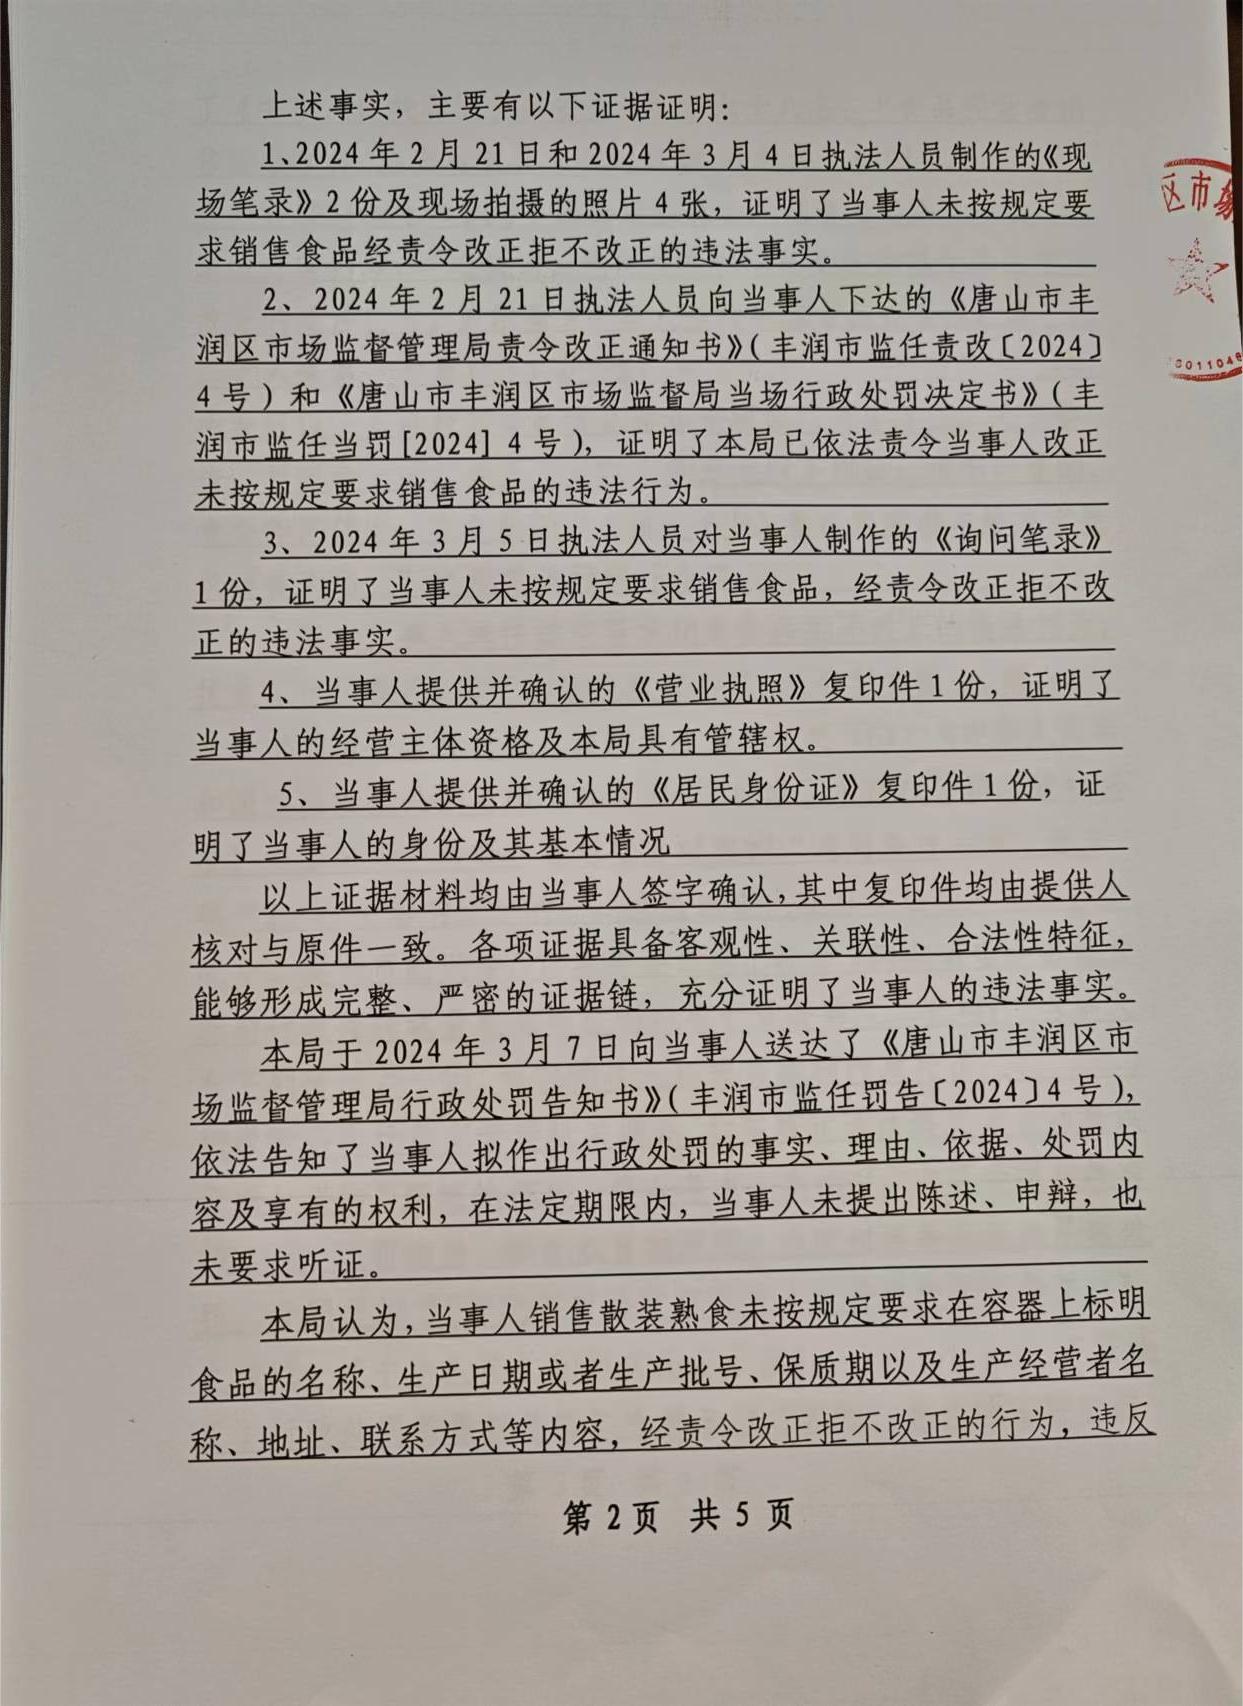 上述事实，主要有以下证据证明：
1、2024年2月21日和2024年3月4日执法人员制作的《现
场笔录》2份及现场拍摄的照片4张，证明了当事人未按规定要
求销售食品经责令改正拒不改正的违法事实。
2、2024年2月21日执法人员向当事人下达的《唐山市丰
润区市场监督管理局责令改正通知书》（丰润市监任责改〔2024〕
4号）和《唐山市丰润区市场监督局当场行政处罚决定书》（丰
润市监任当罚[2024]4号），证明了本局已依法责令当事人改正
未按规定要求销售食品的违法行为。
3、2024年3月5日执法人员对当事人制作的《询问笔录》
1份，证明了当事人未按规定要求销售食品，经责令改正拒不改
正的违法事实。
4、当事人提供并确认的《营业执照》复印件1份，证明了
当事人的经营主体资格及本局具有管辖权。
5、当事人提供并确认的《居民身份证》复印件1份，证
明了当事人的身份及其基本情况
以上证据材料均由当事人签字确认，其中复印件均由提供人
核对与原件一致。各项证据具备客观性、关联性、合法性特征，
能够形成完整、严密的证据链，充分证明了当事人的违法事实。
本局于2024年3月7日向当事人送达了《唐山市丰润区市
场监督管理局行政处罚告知书》（丰润市监任罚告〔2024〕4号），
依法告知了当事人拟作出行政处罚的事实、理由、依据、处罚内
容及享有的权利，在法定期限内，当事人未提出陈述、申辩，也
未要求听证。
本局认为，当事人销售散装熟食未按规定要求在容器上标明
食品的名称、生产日期或者生产批号、保质期以及生产经营者名
称、地址、联系方式等内容，经责令改正拒不改正的行为，违反
第2页 共5页
区市场
8011048